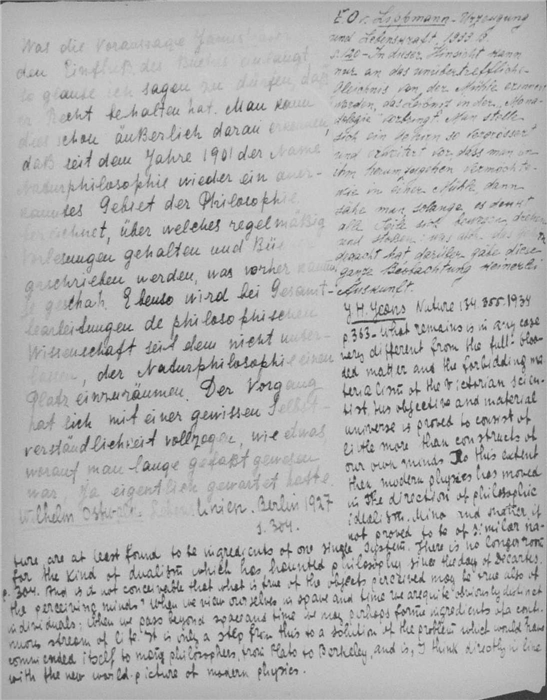 Was die Voraussage James'
den Einfluß des Buches anlangt,
so glaube ich sagen zu dürfen, daß
er Recht behalten hat. Man kann
dies schon äußerlich daran erkennen,
daß seit dem Jahre 1901 der Name
Naturphilosophie wieder ein aner-
kanntes Gebiet der Philosophie
bezeichnet, über welches regelmäßig
Vorlesungen gehalten und Bücher
geschrieben werden, was vorher kaum
je geschah. Ebenso wird bei Gesamt-
bearbeitungen de philosophischen
Wissenschaft seit dem nicht unter-
lassen, der Naturphilosophie einen
Platz einzuräumen. Der Vorgang
hat sich mit einer gewissen Selbst-
verständlichkeit vollzogen, wie etwas
worauf man lange gefaßt gewesen
war, ja eigentlich gewartet hatte.
Wilhelm Ostwald. Lebenslinien. Berlin 1927
S. 304.
E O. v. Lippmann - Urzeugung
und Lebenskraft. 1933. B.
S. 120 - In dieser Hinsicht kann
nur an das unübertreffliche
Gleichnis von der Mühle erinnert
werden, das Leibniz in der „Mona-
dologie" vorbringt. Man stelle
sich ein Gehirn so vergrössert
und erweitert vor, dass man in
ihm herumgehen vermöchte
wie in einer Mühle, dann
sähe man, solange es denkt
alle Teile sich bewegen, drehen
und stossen; was aber das
gedacht hat darüber gäbe diese
ganze Betrachtung keinerlei
Auskunft.
J H. Jeans Nature 134 355. 1934
p. 363 - What remains is in any case
very different from the full-bloo-
ded matter and the forbidding ma-
terialism of the Victorian scien-
tist. His objective and material
universe is proved to consist of
little more than constructs of
our own minds. To this extent
then modern physics has moved
in the direction of philosophic
idealism. Mind and matter, if
not proved to be of similar na-
ture, are at least found to be ingredients of one single system. There is no longer room
for the kind of dualism which has haunted philosophy since the day of Descartes.
p. 364. And is it not conceivable that what is true of the objects perceived may be true also of
the perceiving minds? When we view ourselves in space and time we are quite obviously distinct
individuals; when we pass beyond space and time we may perhaps form ingredients of a conti-
nuous stream of life. It is only a step from this to a solution of the problem which would have
commended itself to many philosophers, from Plato to Berkeley, and is, I think directly in line
with the new world-picture of modern physics.